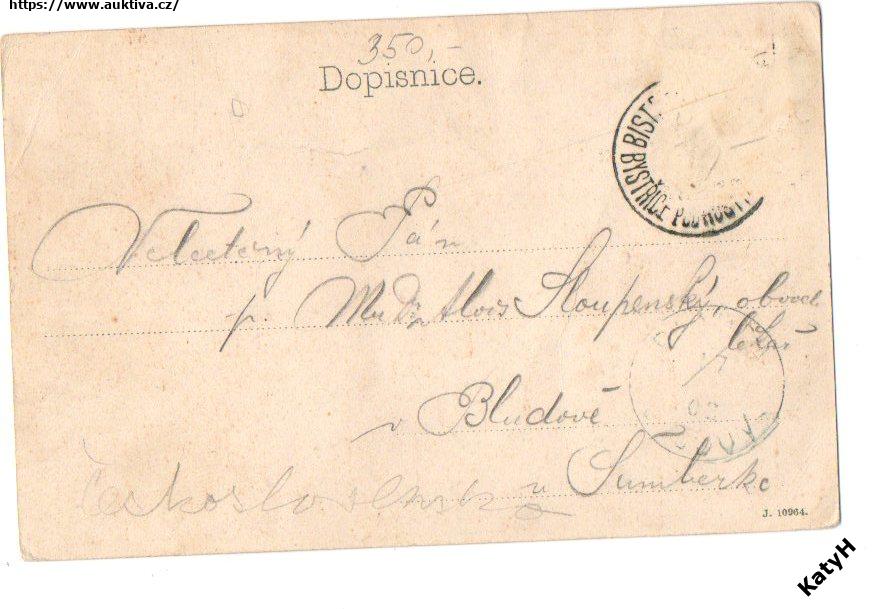 https://www.auktiva.cz/
350,-
Dopisnice.
BISTŘICE POD HOST
BIST
Veletený Pán
p. MuDr Alois Sloupenský, obvod.
lékař
v Bludově
u Šumberka
J. 10964.
KatyH